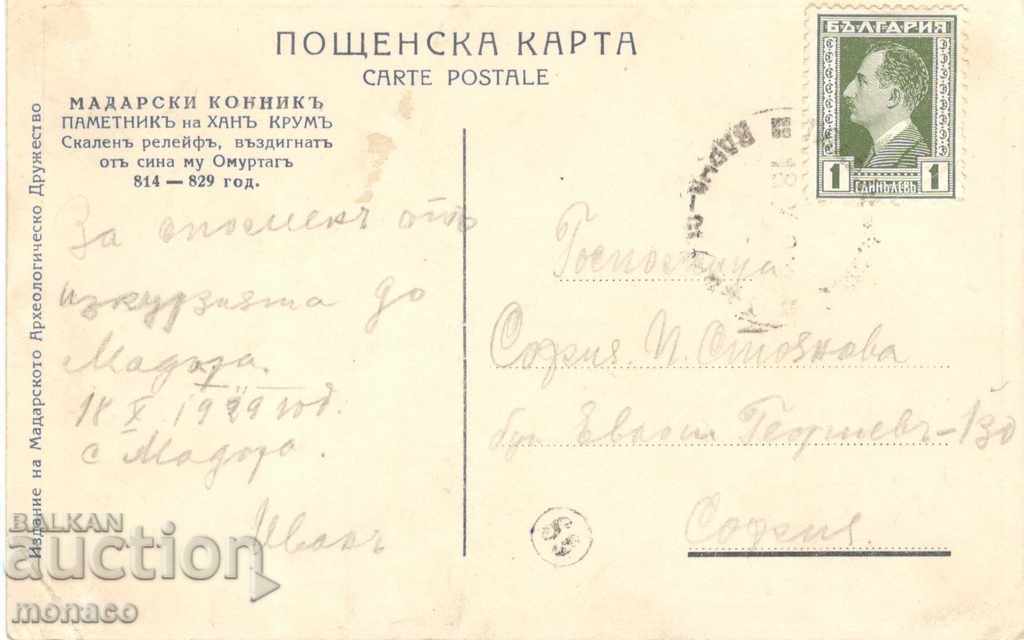 ПОЩЕНСКА КАРТА
CARTE POSTALE
МАДАРСКИ КОННИКЪ
ПАМЕТНИКЪ на ХАНЪ КРУМЪ
Скаленъ релейфъ, въздигнатъ
отъ сина му Омуртагъ
814 — 829 год.
Издание на Мадарското Археологическо Дружество
БЪЛГАРИЯ
1 ЕДИНЪ ЛЕВЪ 1
ВАРНА
За споменъ отъ
до
Мадара.
18 X 1929 год.
с Мадара.
Иванъ
Госпожица
София П. Стоянова
бул Евлоги Георгиевъ-130
София.
BALKAN
auction
monaco